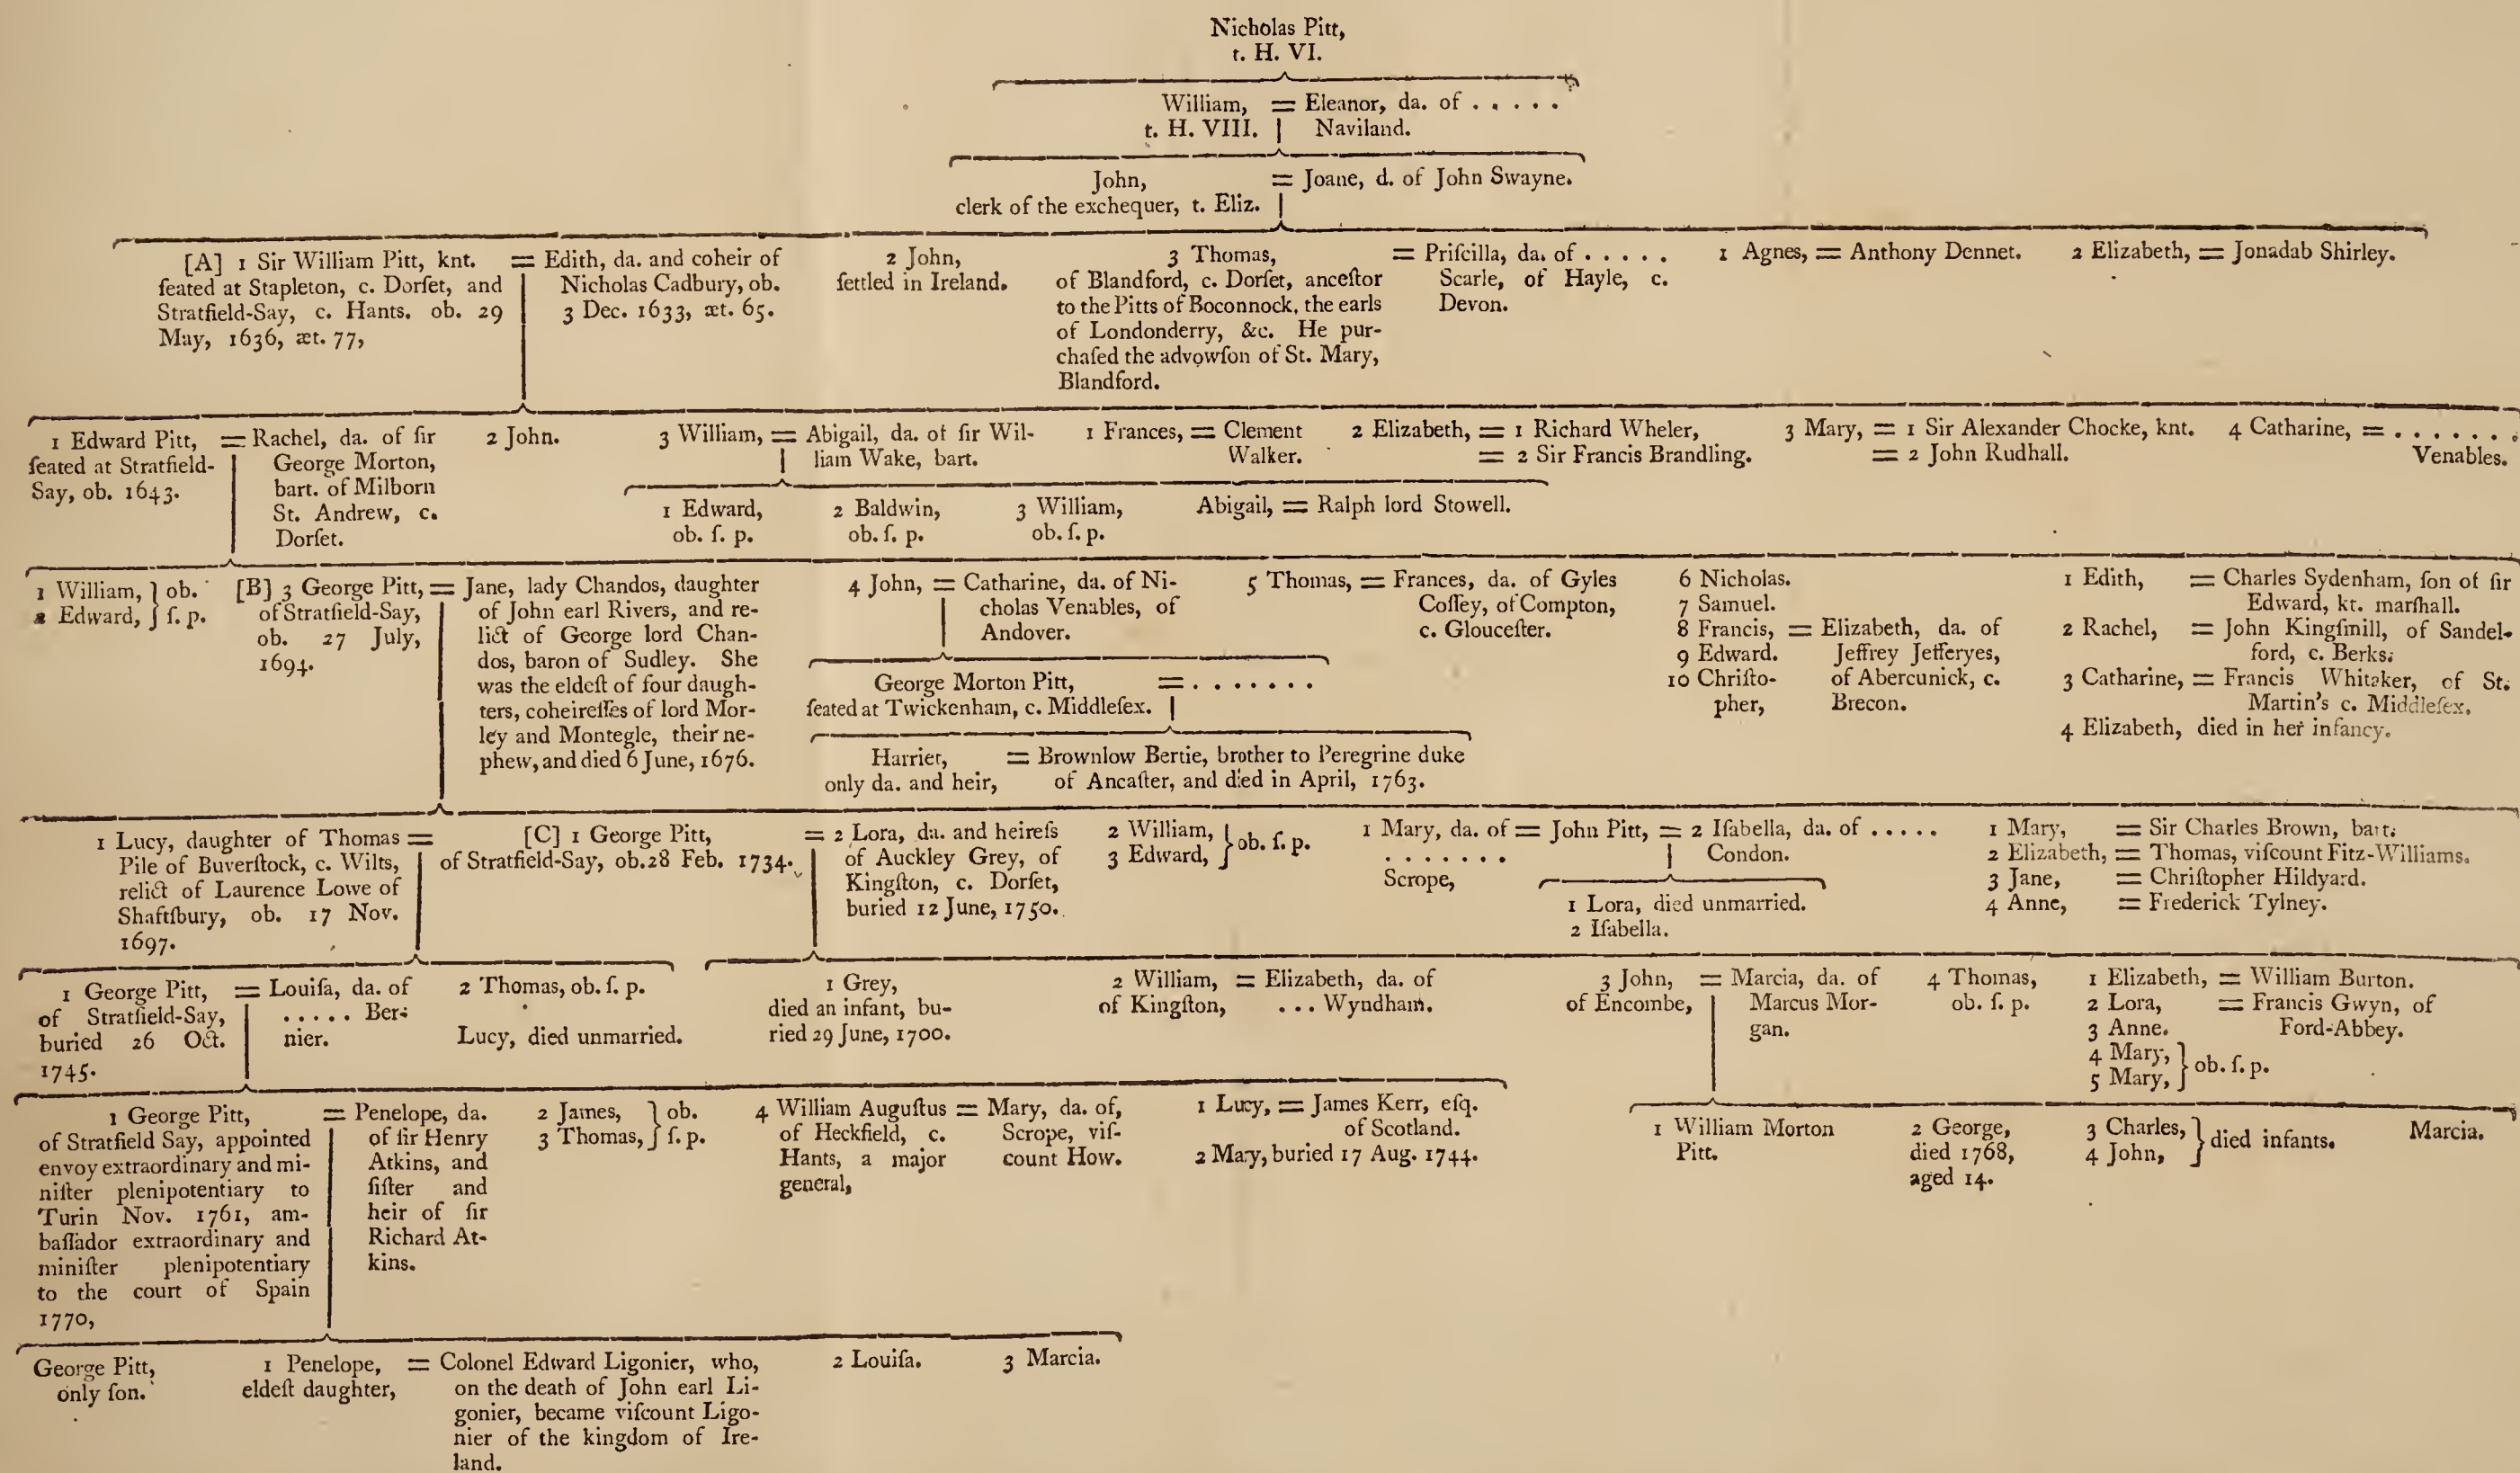 Nicholas Pitt,
t. H. VI.
William, = Eleanor, da. of . . . . .
t. H. VIII. Naviland.
John, = Joane, d. of John Swayne.
clerk of the exchequer, t. Eliz.
[A] 1 Sir William Pitt, knt.
ſeated at Stapleton, c. Dorſet, and
Stratfield-Say, c. Hants. ob. 29
May, 1636, æt. 77,
= Edith, da. and coheir of
Nicholas Cadbury, ob.
3 Dec. 1633, æt. 65.
2 John,
ſettled in Ireland.
3 Thomas,
of Blandford, c. Dorſet, anceſtor
to the Pitts of Boconnock, the earls
of Londonderry, &c. He pur-
chaſed the advowſon of St. Mary,
Blandford.
= Priſcilla, da. of . . . . .
Scarle, of Hayle, c.
Devon.
1 Agnes, = Anthony Dennet.
2 Elizabeth, = Jonadab Shirley.
1 Edward Pitt,
ſeated at Stratfield-
Say, ob. 1643.
= Rachel, da. of ſir
George Morton,
bart. of Milborn
St. Andrew, c.
Dorſet.
2 John.
3 William, = Abigail, da. of ſir Wil-
liam Wake, bart.
1 Frances, = Clement
Walker.
2 Elizabeth, = 1 Richard Wheler,
= 2 Sir Francis Brandling.
3 Mary, = 1 Sir Alexander Chocke, knt.
= 2 John Rudhall.
4 Catharine, = . . . . . . .
Venables.
1 Edward,
ob. ſ. p.
2 Baldwin,
ob. ſ. p.
3 William,
ob. ſ. p.
Abigail, = Ralph lord Stowell.
1 William, } ob.
2 Edward, } ſ. p.
[B] 3 George Pitt,
of Stratfield-Say,
ob. 27 July,
1694.
= Jane, lady Chandos, daughter
of John earl Rivers, and re-
lict of George lord Chan-
dos, baron of Sudley. She
was the eldeſt of four daugh-
ters, coheireſſes of lord Mor-
ley and Montegle, their ne-
phew, and died 6 June, 1676.
4 John, = Catharine, da. of Ni-
cholas Venables, of
Andover.
George Morton Pitt, = . . . . . . .
ſeated at Twickenham, c. Middleſex.
Harriet, = Brownlow Bertie, brother to Peregrine duke
only da. and heir, of Ancaſter, and died in April, 1763.
5 Thomas, = Frances, da. of Gyles
Coſſey, of Compton,
c. Glouceſter.
6 Nicholas.
7 Samuel.
8 Francis, = Elizabeth, da. of
9 Edward. Jeffrey Jefferyes,
10 Chriſto- of Abercunick, c.
pher, Brecon.
1 Edith, = Charles Sydenham, ſon of ſir
Edward, kt. marſhall.
2 Rachel, = John Kingſmill, of Sandel-
ford, c. Berks.
3 Catharine, = Francis Whitaker, of St.
Martin's c. Middleſex.
4 Elizabeth, died in her infancy.
1 Lucy, daughter of Thomas =
Pile of Buverſtock, c. Wilts,
relict of Laurence Lowe of
Shaftſbury, ob. 17 Nov.
1697.
[C] 1 George Pitt,
of Stratfield-Say, ob. 28 Feb. 1734.
= 2 Lora, da. and heireſs
of Auckley Grey, of
Kingſton, c. Dorſet,
buried 12 June, 1750.
2 William, } ob. ſ. p.
3 Edward,
1 Mary, da. of = John Pitt, = 2 Iſabella, da. of . . . . .
. . . . . . . London.
Scrope,
1 Lora, died unmarried.
2 Iſabella.
1 Mary, = Sir Charles Brown, bart.
2 Elizabeth, = Thomas, viſcount Fitz-Williams.
3 Jane, = Chriſtopher Hildyard.
4 Anne, = Frederick Tylney.
1 George Pitt,
of Stratfield-Say,
buried 26 Oct.
1745.
= Louiſa, da. of
. . . . . Ber-
nier.
2 Thomas, ob. ſ. p.
Lucy, died unmarried.
1 Grey,
died an infant, bu-
ried 29 June, 1700.
2 William, = Elizabeth, da. of
of Kingſton, . . . Wyndham.
3 John, = Marcia, da. of
of Encombe, Marcus Mor-
gan.
4 Thomas,
ob. ſ. p.
1 Elizabeth, = William Burton.
2 Lora, = Francis Gwyn, of
3 Anne. Ford-Abbey.
4 Mary, } ob. ſ. p.
5 Mary,
1 George Pitt,
of Stratfield Say, appointed
envoy extraordinary and mi-
niſter plenipotentiary to
Turin Nov. 1761, am-
baſſador extraordinary and
miniſter plenipotentiary
to the court of Spain
1770,
= Penelope, da.
of ſir Henry
Atkins, and
ſiſter and
heir of ſir
Richard At-
kins.
2 James, } ob.
3 Thomas, } ſ. p.
4 William Auguſtus = Mary, da. of,
of Heckfield, c. Scrope, viſ-
Hants, a major count How.
general,
1 Lucy, = James Kerr, eſq.
of Scotland.
2 Mary, buried 17 Aug. 1744.
1 William Morton
Pitt.
2 George,
died 1768,
aged 14.
3 Charles, } died infants.
4 John,
Marcia.
George Pitt,
only ſon.
1 Penelope,
eldeſt daughter,
= Colonel Edward Ligonier, who,
on the death of John earl Li-
gonier, became viſcount Ligo-
nier of the kingdom of Ire-
land.
2 Louiſa.
3 Marcia.